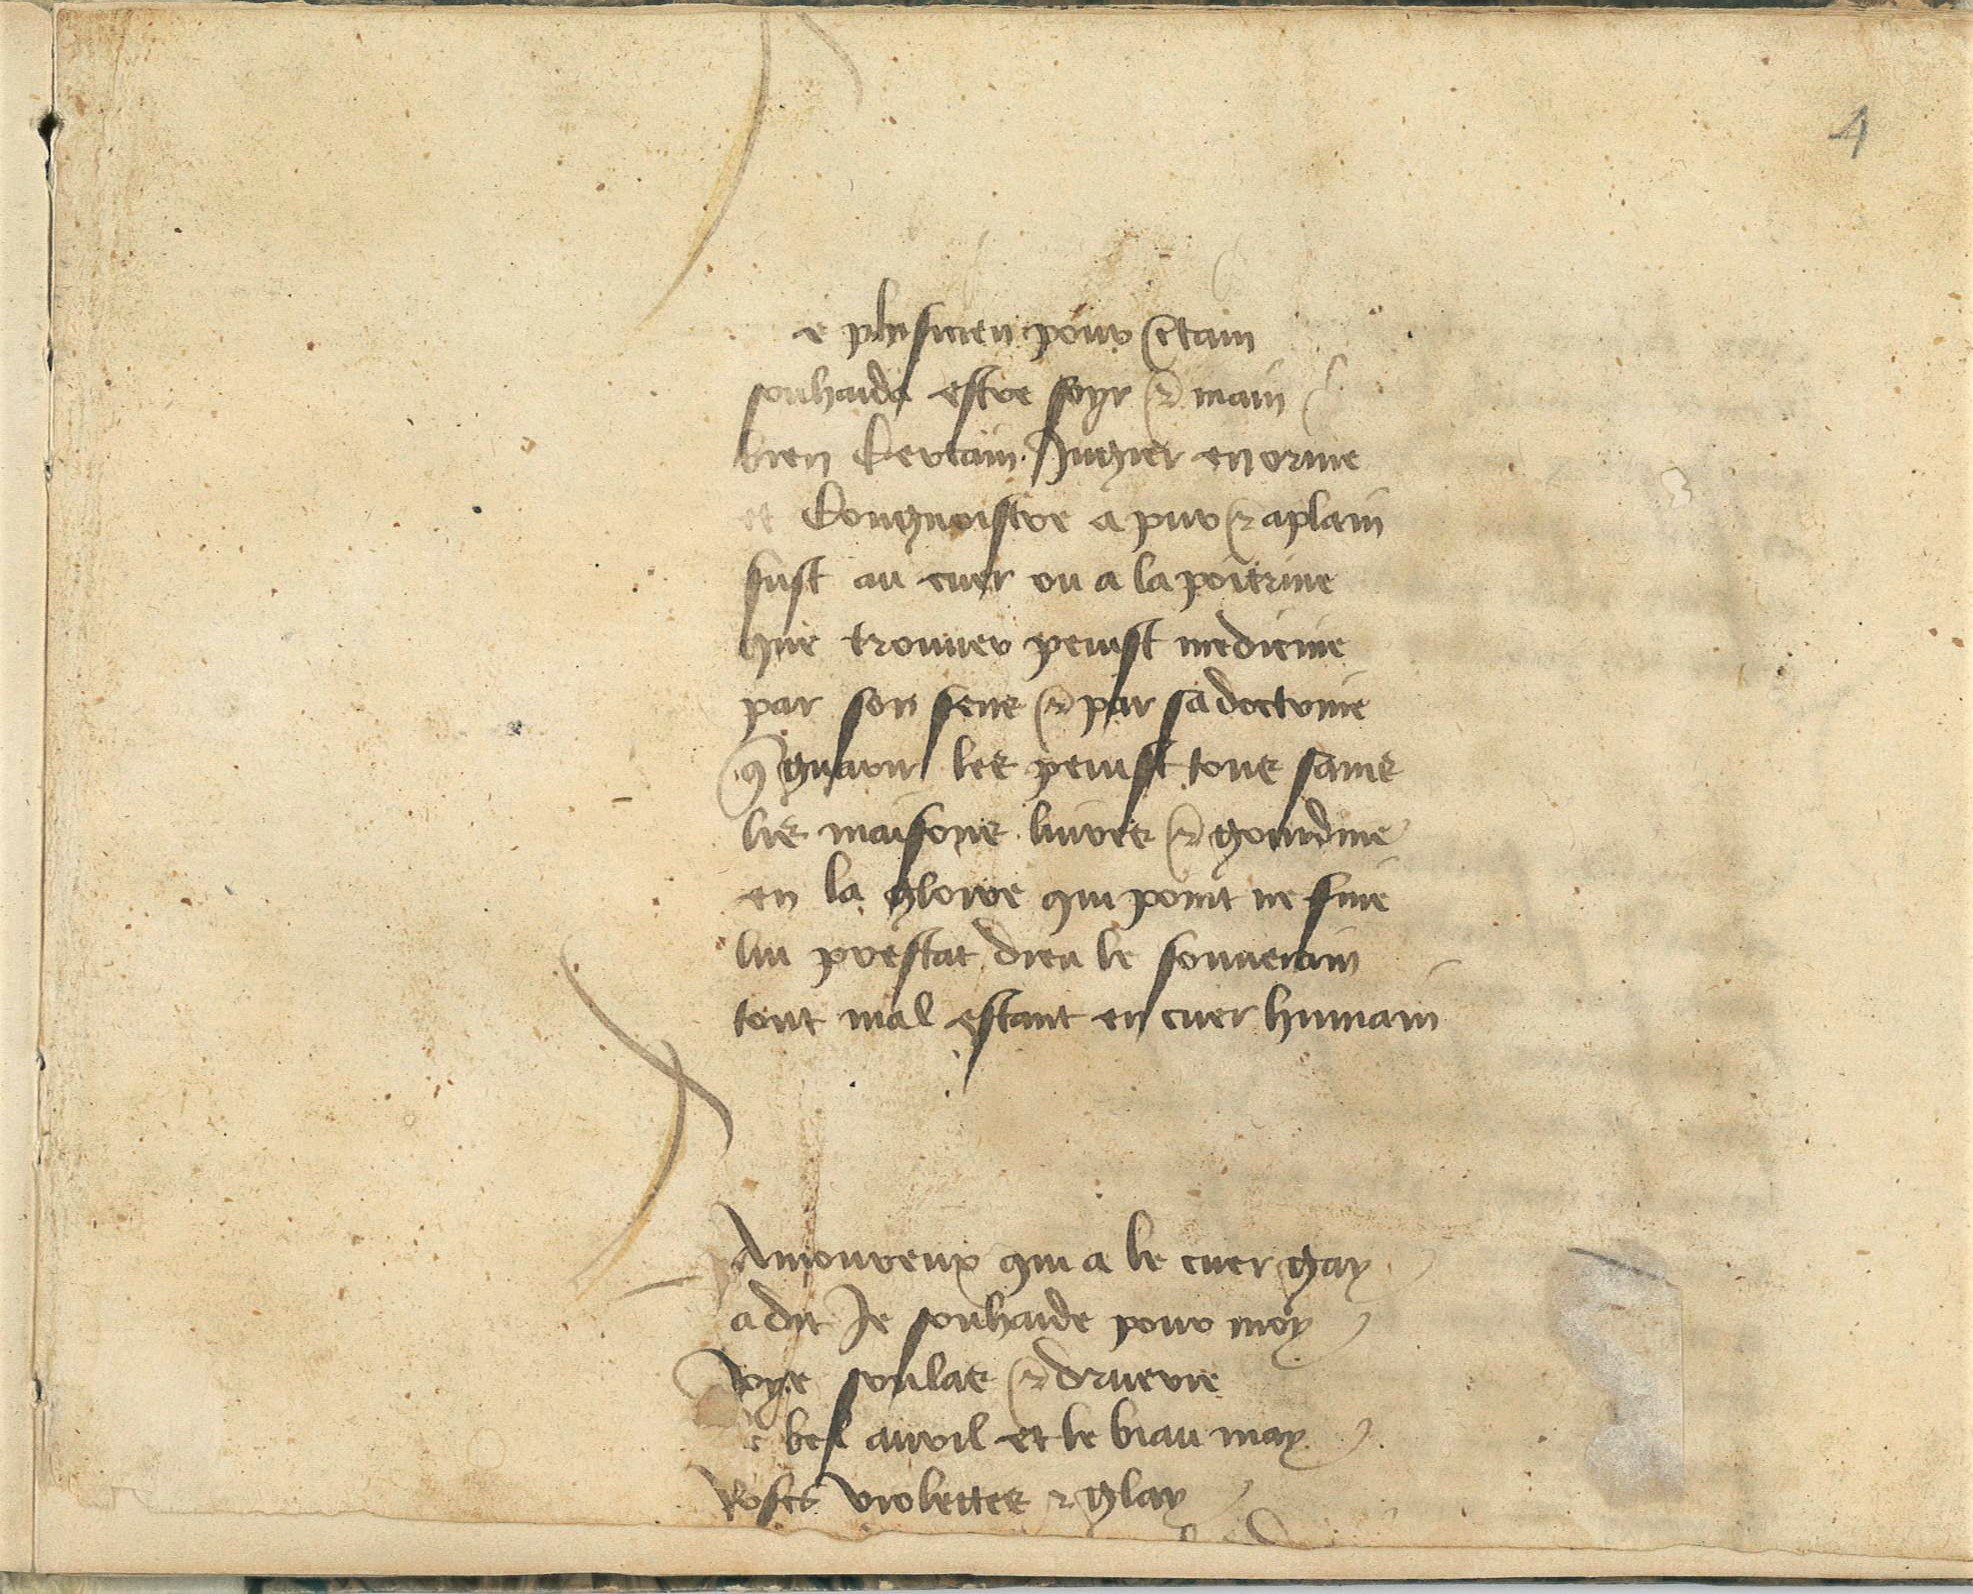 4
e phisicien pour certain
souhaida estre soyr & main
bien certain Jugier en orine
et congnoistre a pur & a plain
fust au cuer ou a la poitrine
que trouver peuist medicine
par son sens & par sa doctrine
guarir les peuist tous sains
lis maisons livres & gourdine
en la glore qui point ne fine
lui prestat dieu le souverain
tout mal estant en cuer humain
Amoureux qui a le cuer gay
a dit Je souhaide pour moy
Joye soulas & druerie
e bel avril et le biau may
Roses violettes & glay